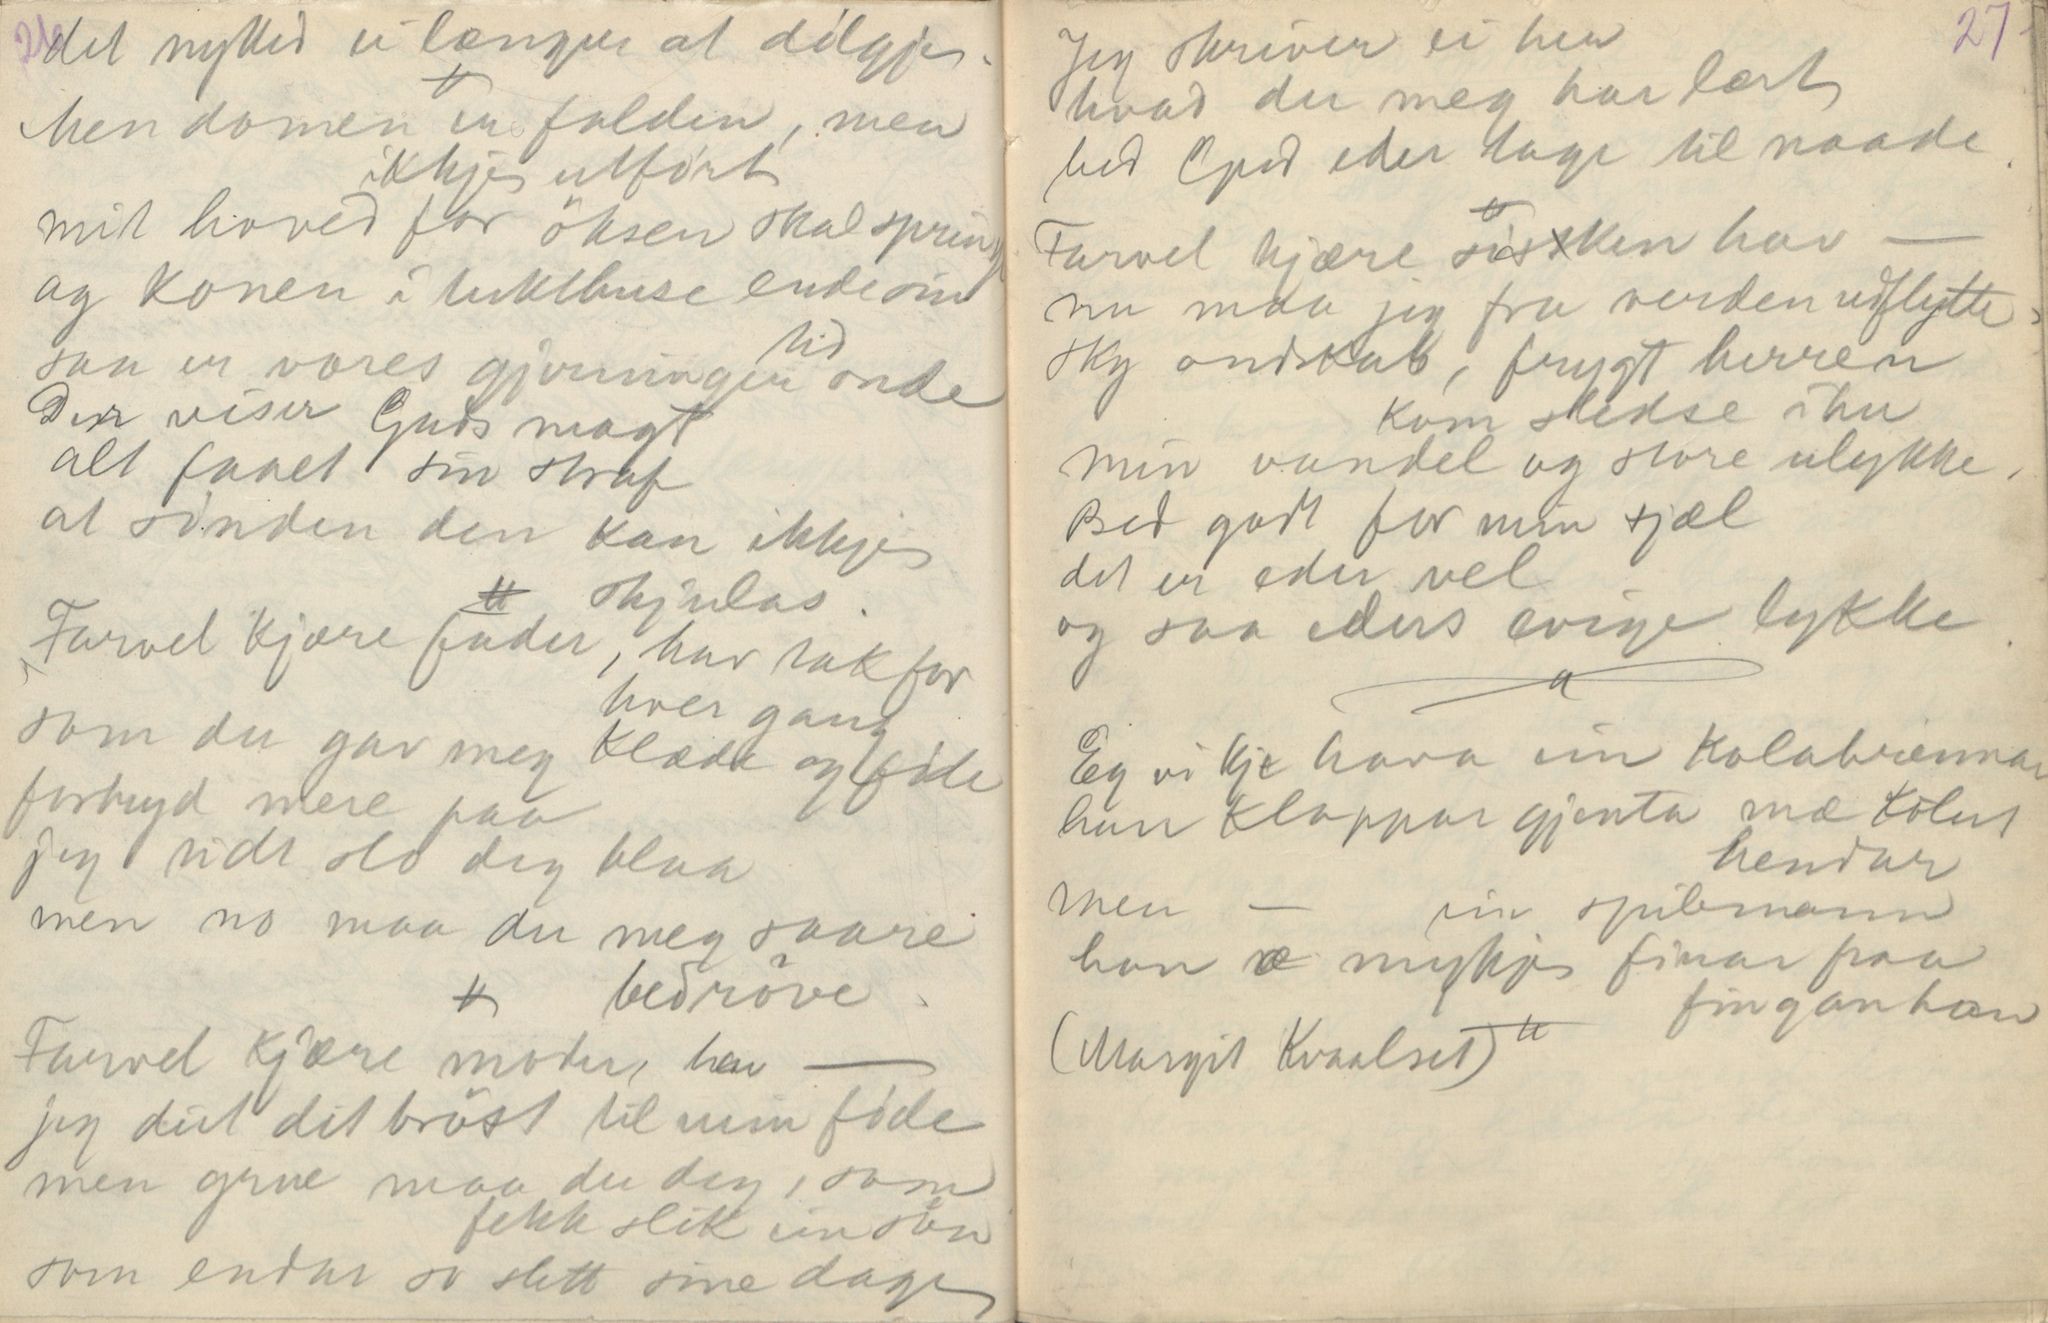 26
det nytted ei længer at dølgje.
Men domen er falden, men
ikkje utført
mit hoved for öksen skal springe
og Konen i tukthuse ende sin
tid
saa er vores gjerninger onde
Der viser Guds magt
alt faaet sin straf
at sönden den kan ikkje
skjulas.
Farvel kjære fader, hav tak for
hver gang
som du gav meg klæde og föde
fortryd mere paa
jeg tidt slo deg blaa
men no maa du meg saare
bedröve.
Farvel kjære moder, hav —
jeg diet dit bröst til min föde
men grue maa du deg, som
fekk slik ein sön
som endar so slett sine dage
27
Jeg skriver ei her
hvad der meg har lært
bed Gud eder tage til naade.
Farvel kjære sissken hav —
nu maa jeg fra verden udflytte,
sky ondskab, frygt herren
kom stedse ihu
min vandel og store ulykke.
Bed godt for min sjæl
det er eder vel
og saa eders evige lykke.
Eg vi kje hava ein Kolabrennar
han klappar gjenta mæ kolut
hendar
men — ein spilemann
han æ mykje finar paa
fingan han
(Margit Kvaalset)